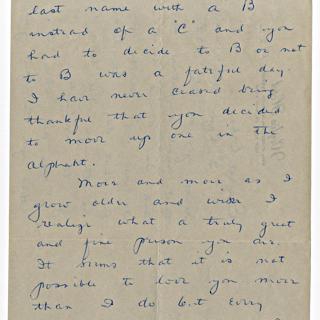 last name with a B
instead of a "C" and you
had to decide to B or not
to B was a fateful day
I have never ceased being
thankful that you decided
to move up one in the
alphabt.
More and more as I
grow older and wiser I
realize what a truly great
and fine person you are.
It seems that it is not
possible to love you more
than I do but every